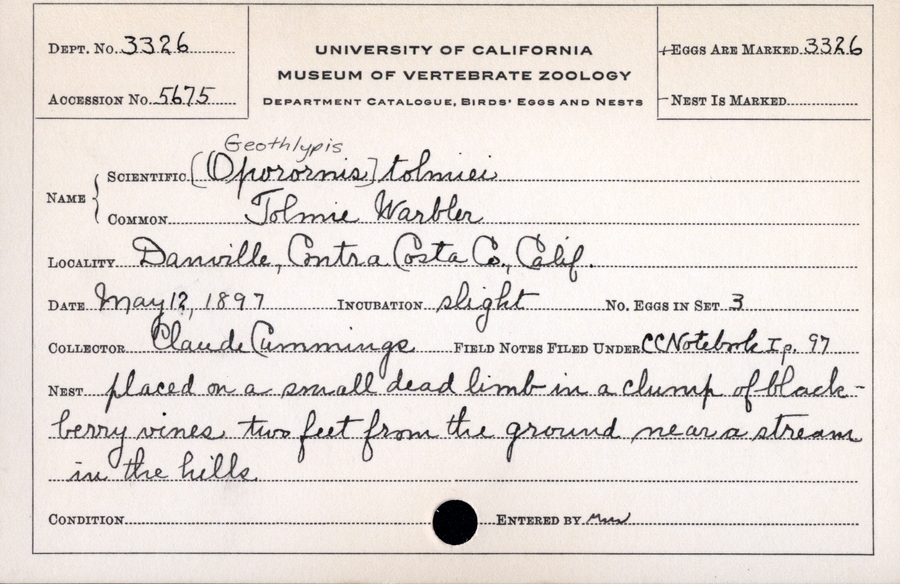 DEPT. No. 3326
ACCESSION No. 5675
UNIVERSITY OF CALIFORNIA
MUSEUM OF VERTEBRATE ZOOLOGY
DEPARTMENT CATALOGUE, BIRDS' EGGS AND NESTS
+EGGS ARE MARKED 3326
-NEST IS MARKED
Geothlypis
NAME
SCIENTIFIC [Oporornis] tolmiei
COMMON Tolmie Warbler
LOCALITY Danville, Contra Costa Co., Calif.
DATE May 12, 1897 INCUBATION slight No. EGGS IN SET 3
COLLECTOR Claude Cummings FIELD NOTES FILED UNDER CC Notebook I p. 97
NEST placed on a small dead limb in a clump of black-
berry vines two feet from the ground near a stream
in the hills
CONDITION ENTERED BY